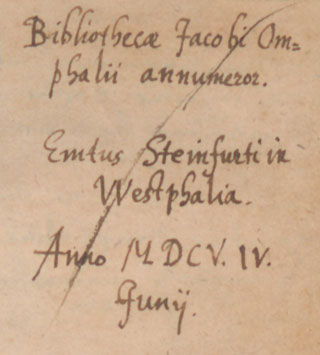 Bibliothecæ Jacobi Om=
phalii annumeror.
Emtus Steinfurti in
Westphalia.
Anno MDCV. IV.
Junij.